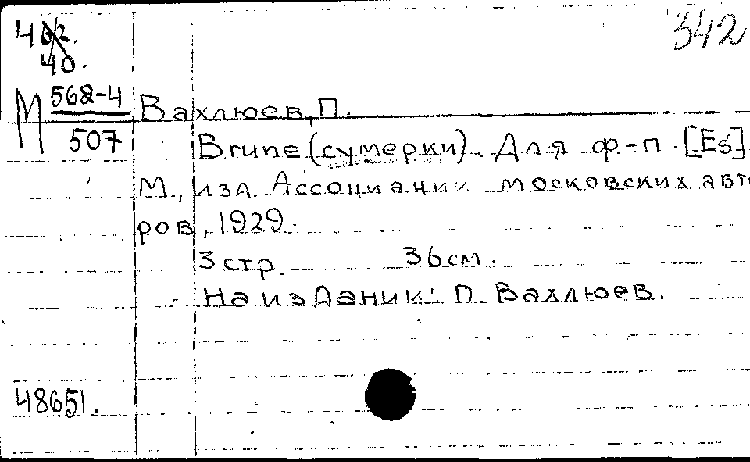 402.
342
40.
М 568-4
507
Вахлюев, П.
Brune (сумерки). Для ф-п. [Es].
М., изд. Ассоциации московских авто
ров, 1929.
3 стр. 36 см.
На издании: П. Вахлюев.
48651.